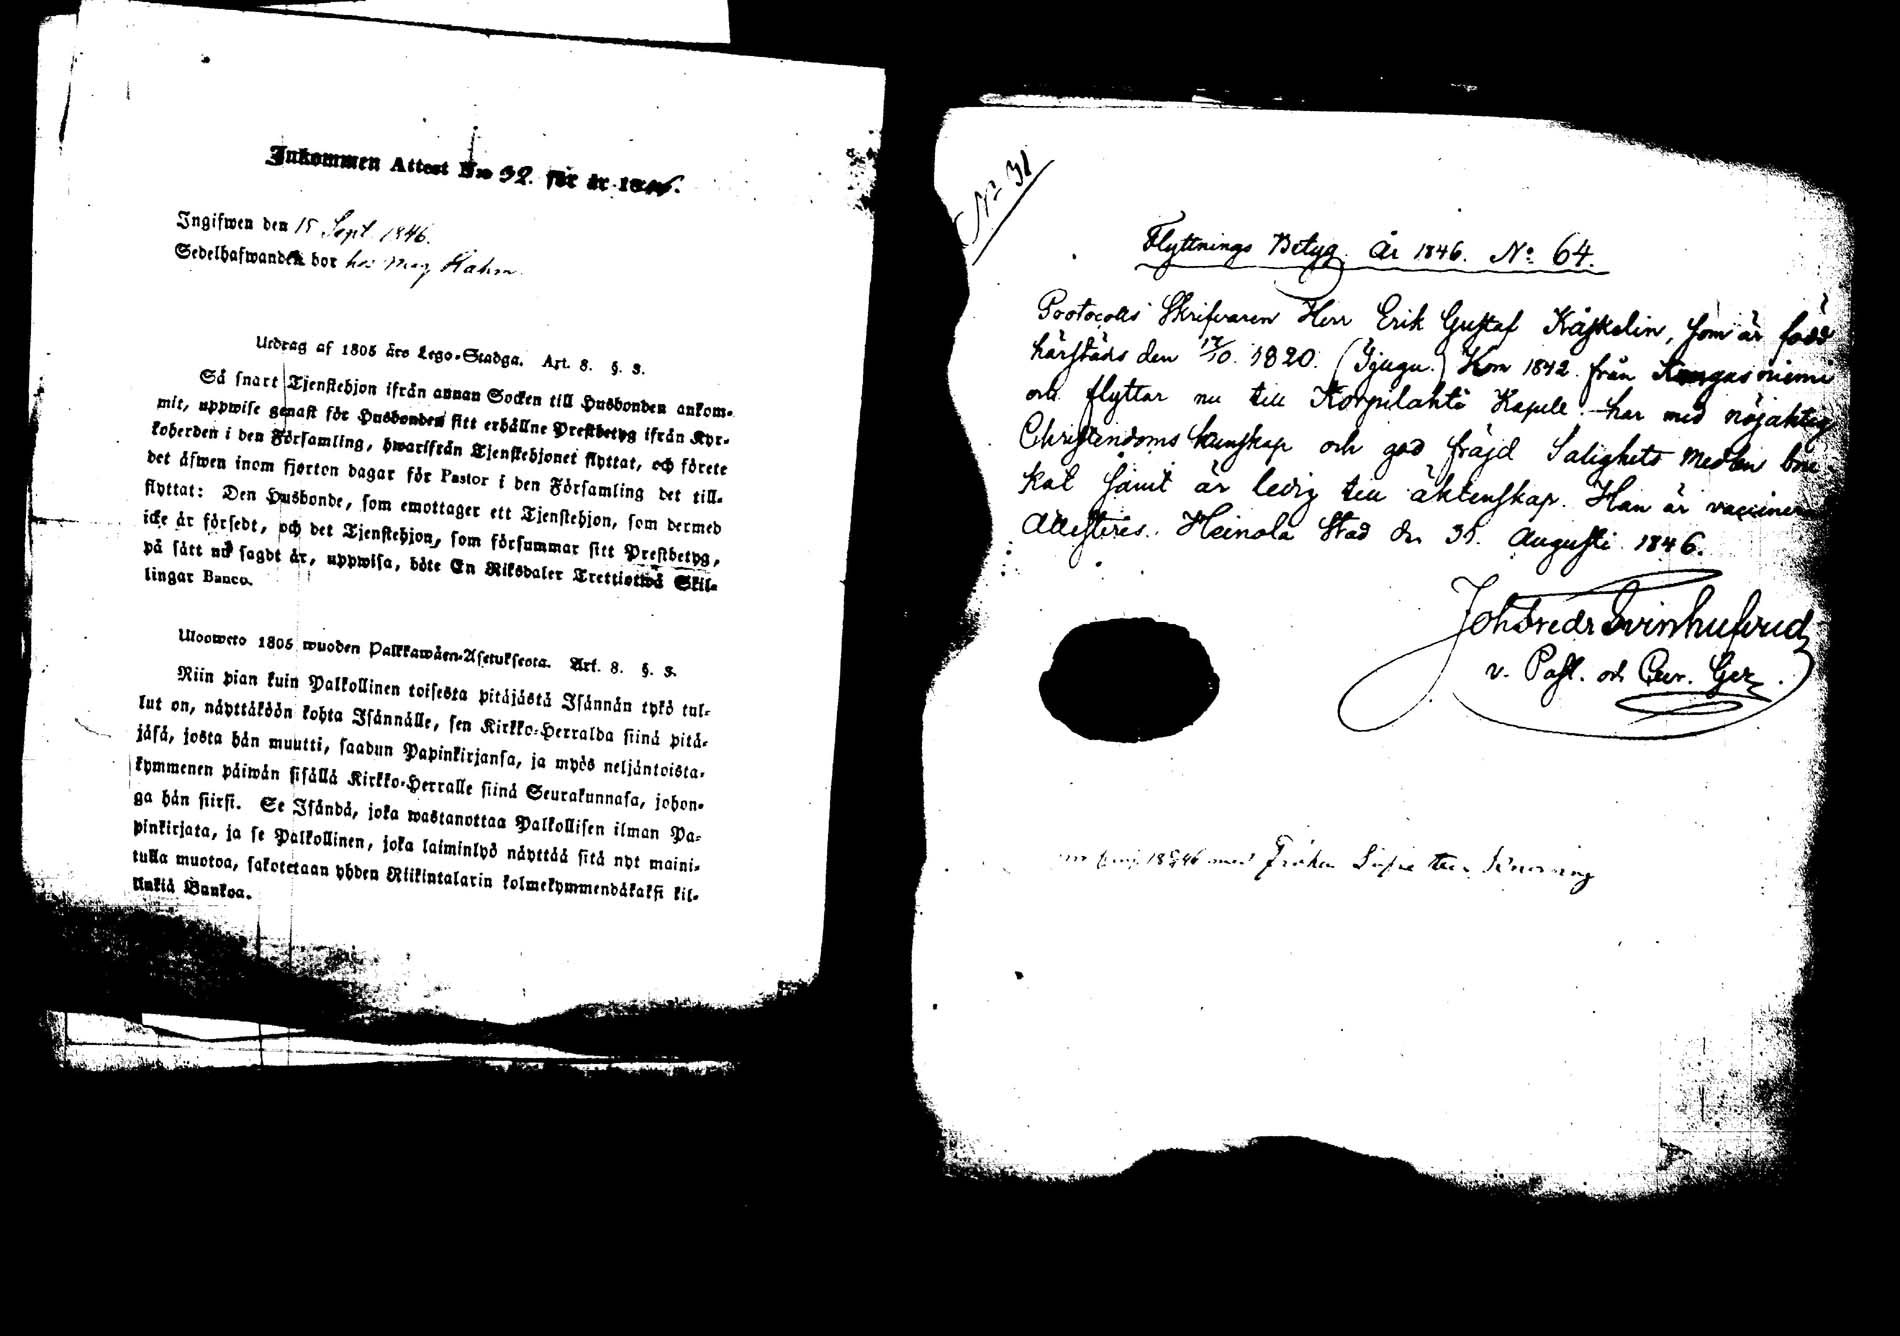 Inkommen Attest N:o 32. för år 1846.
Ingifwen den 15 Sept. 1846.
Sedelhafwanden bor hos Maj Hahn
Utdrag af 1805 års Lego-Stadga. Art. 8. §. 3.
Så snart Tjenstehjon ifrån annan Socken till Husbonden ankom-
mit, uppwise genast för Husbonden sitt erhållne Prestbetyg ifrån Kyr-
koherden i den Församling, hwarifrån Tjenstehjonet flyttat, och förete
det äfwen inom fjorton dagar för Pastor i den Församling det till-
flyttat: Den Husbonde, som emottager ett Tjenstehjon, som dermed
icke är försedt, och det Tjenstehjon, som försummar sitt Prestbetyg,
på sätt nu sagdt är, uppwisa, böte En Riksdaler Trettiotwå Skil-
lingar Banco.
Ulosweto 1805 wuoden Palkkawäen-Asetuksesta. Art. 8. §. 3.
Niin pian kuin Palkollinen toisesta pitäjästä Isännän tykö tul-
lut on, näyttäköön kohta Isännälle, sen Kirkko-Herralda siinä pitä-
jäsä, josta hän muutti, saadun Papinkirjansa, ja myös neljäntoista-
kymmenen päiwän sisällä Kirkko-Herralle siinä Seurakunnasa, johon-
ga hän siirsi. Se Isändä, joka wastanottaa Palkollisen ilman Pa-
pinkirjata, ja se Palkollinen, joka laiminlyö näyttää sitä nyt maini-
tulla muotoa, sakotetaan yhden Riikintalarin kolmekymmendäkaksi kil-
linkiä Bankoa.
N:o 32
Flyttnings Betyg. År 1846. N:o 64.
Protocolls Skrifvaren Herr Erik Gustaf Kåskelin, som är född
härstädes den 17/10. 1820. (Tjugu.) Kom 1842. från Kangasniemi
och flyttar nu till Korpilahti Kapell. har med nöjaktig
Christendoms kunskap och god fräjd Salighets medlen bru
kat samt är ledig till äktenskap. Han är vaccinerad
Attesteres. Heinola Stad den 31. Augusti 1846.
Joh Fredr Svinhufvud
v. Past. och Cur. Ger.
1846 med Fröken Sofie